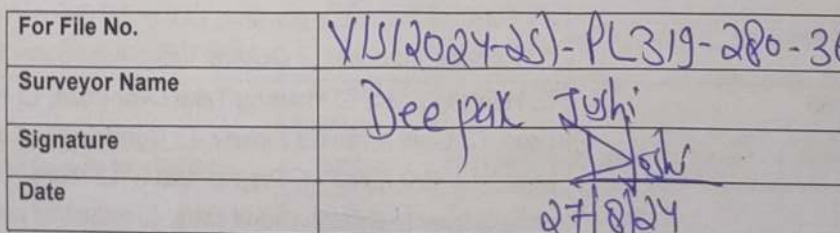 For File No. VIS(2024-25)-PL319-280-36
Surveyor Name Deepak Joshi
Signature DJoshi
Date 27/8/24